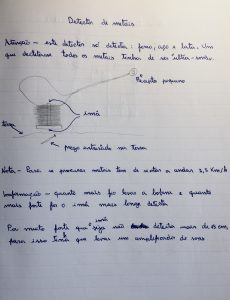 Detector de metais
Atenção - este detector só detecta: ferro, aço e lata. Um
que detetasse todos os metais tinha de ser ultra-
pequeno
imã
terra
prego enterrado na terra
Nota - Para se procurar metais tem de andar a 3,5 Km/h
quanto mais fio levar a bobina e quanto
mais forte for o imã mais longe detecta
imã
Por muito forte que seja não detecta mais de 15 cm,
para isso tinha que levar um amplificador de